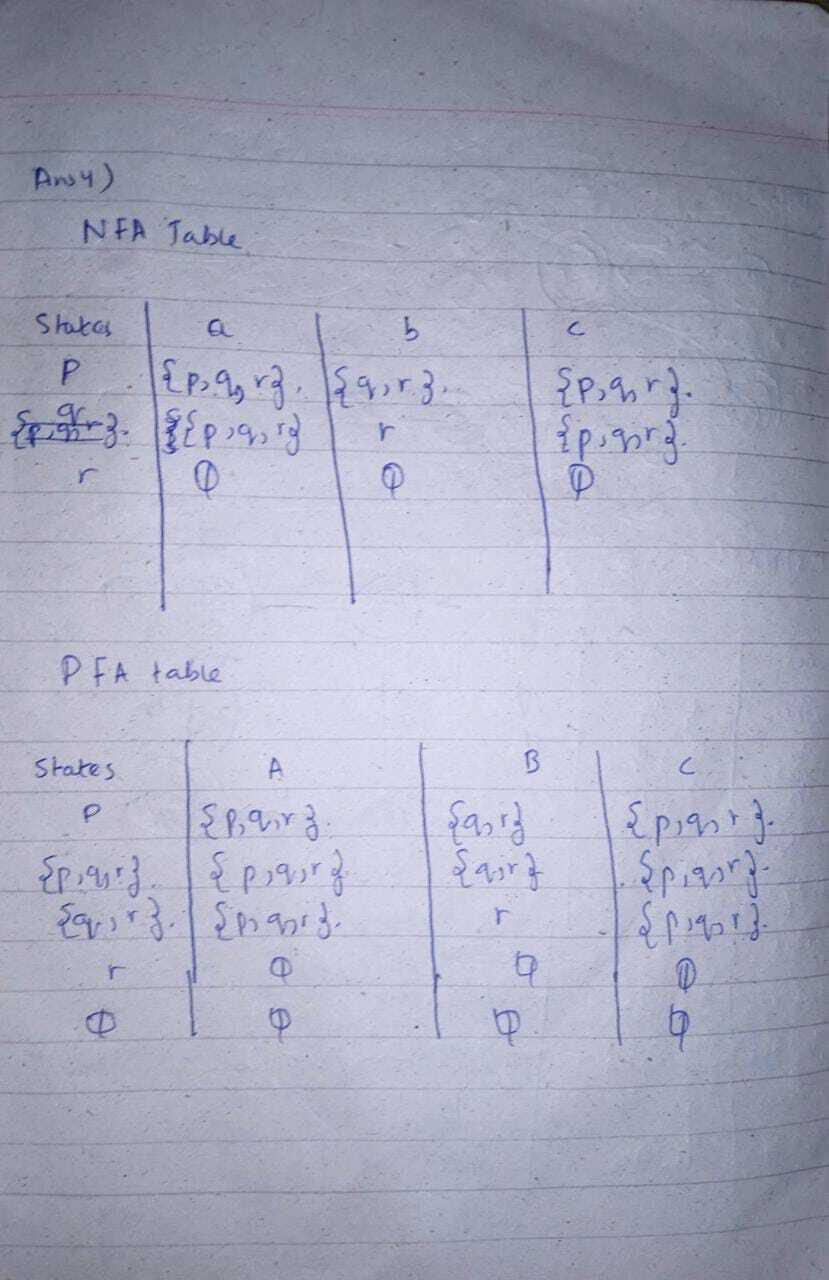 Ans 4)
NFA Table
States a b c
P {p,q,r}. {q,r}. {p,q,r}.
q {p,q,r} r {p,q,r}.
r Φ Φ Φ
DFA table
States A B C
P {p,q,r}. {q,r} {p,q,r}.
{p,q,r}. {p,q,r} {q,r} {p,q,r}.
{q,r}. {p,q,r}. r {p,q,r}.
r Φ Φ Φ
Φ Φ Φ Φ